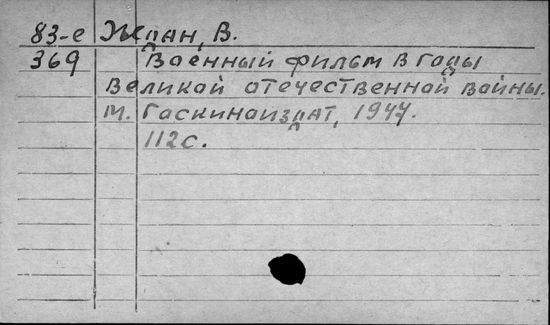 83-е Ждан, В.
369 Военный фильм в годы
Великой отечественной войны.
М. Госкиноиздат, 1947.
112с.